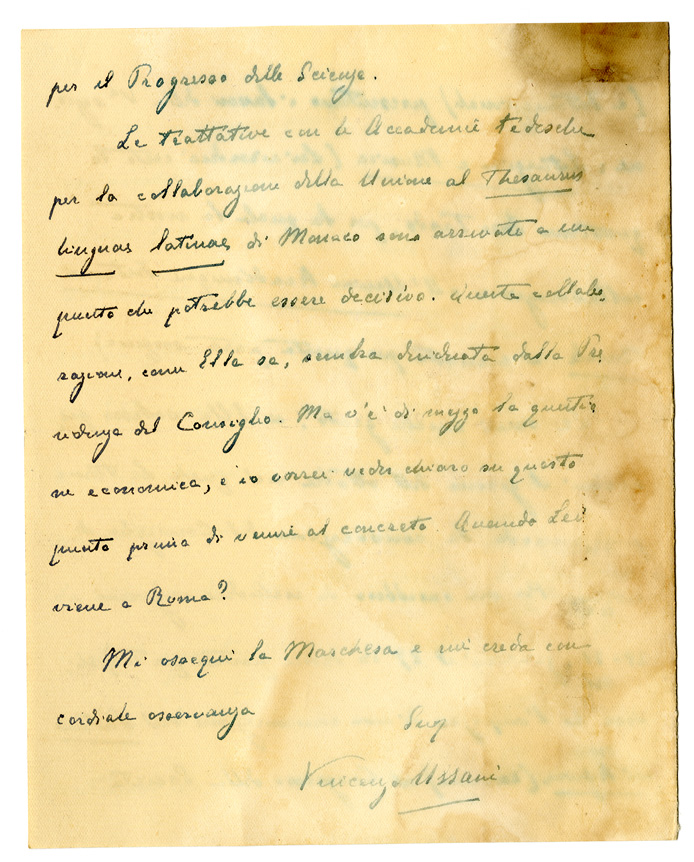 per il Progresso delle Scienze.
Le trattative con le Accademie tedesche
per la collaborazione della Unione al Thesaurus
linguae latinae di Monaco sono arrivate a un
punto che potrebbe essere decisivo. Questa collabo-
razione, come Ella sa, sembra desiderata dalla Pre
sidenza del Consiglio. Ma v'è di mezzo la questio
ne economica, e io vorrei veder chiaro su questo
punto prima di venire al concreto. Quando Lei
viene a Roma?
Mi ossequi la Marchesa e mi creda con
cordiale osservanza
Suo
Vincenzo Ussani